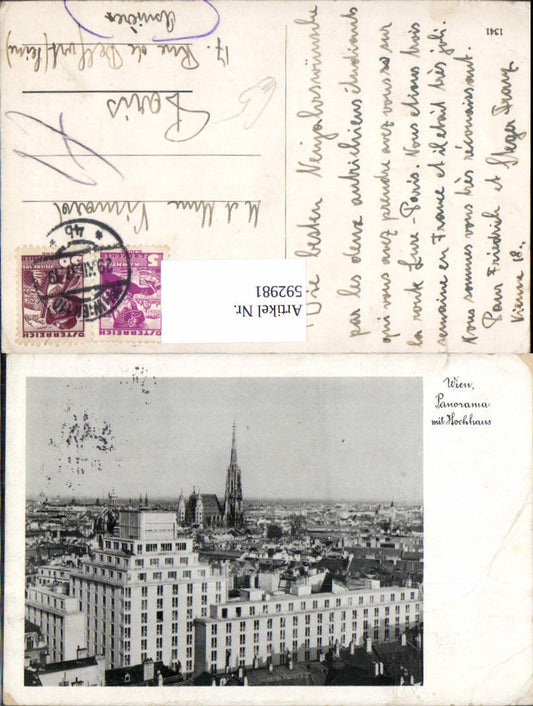 1341
Die besten Neujahrswünsche
par les deux autrichiens étudiants
qui vous avez prendre avez vous sur
la route Paris. Nous etions trois
semaine en France et il était très joli.
Nous sommes vous très réconnaissant.
Hans Friedrich et Steger Franz
Vienne 18.
M et Mme
Paris
17. Rue de Belfort (Seine)
Asnières
ÖSTERREICH
ÖSTERREICH
Artikel Nr.
592981
Wien,
Panorama
mit Hochhaus